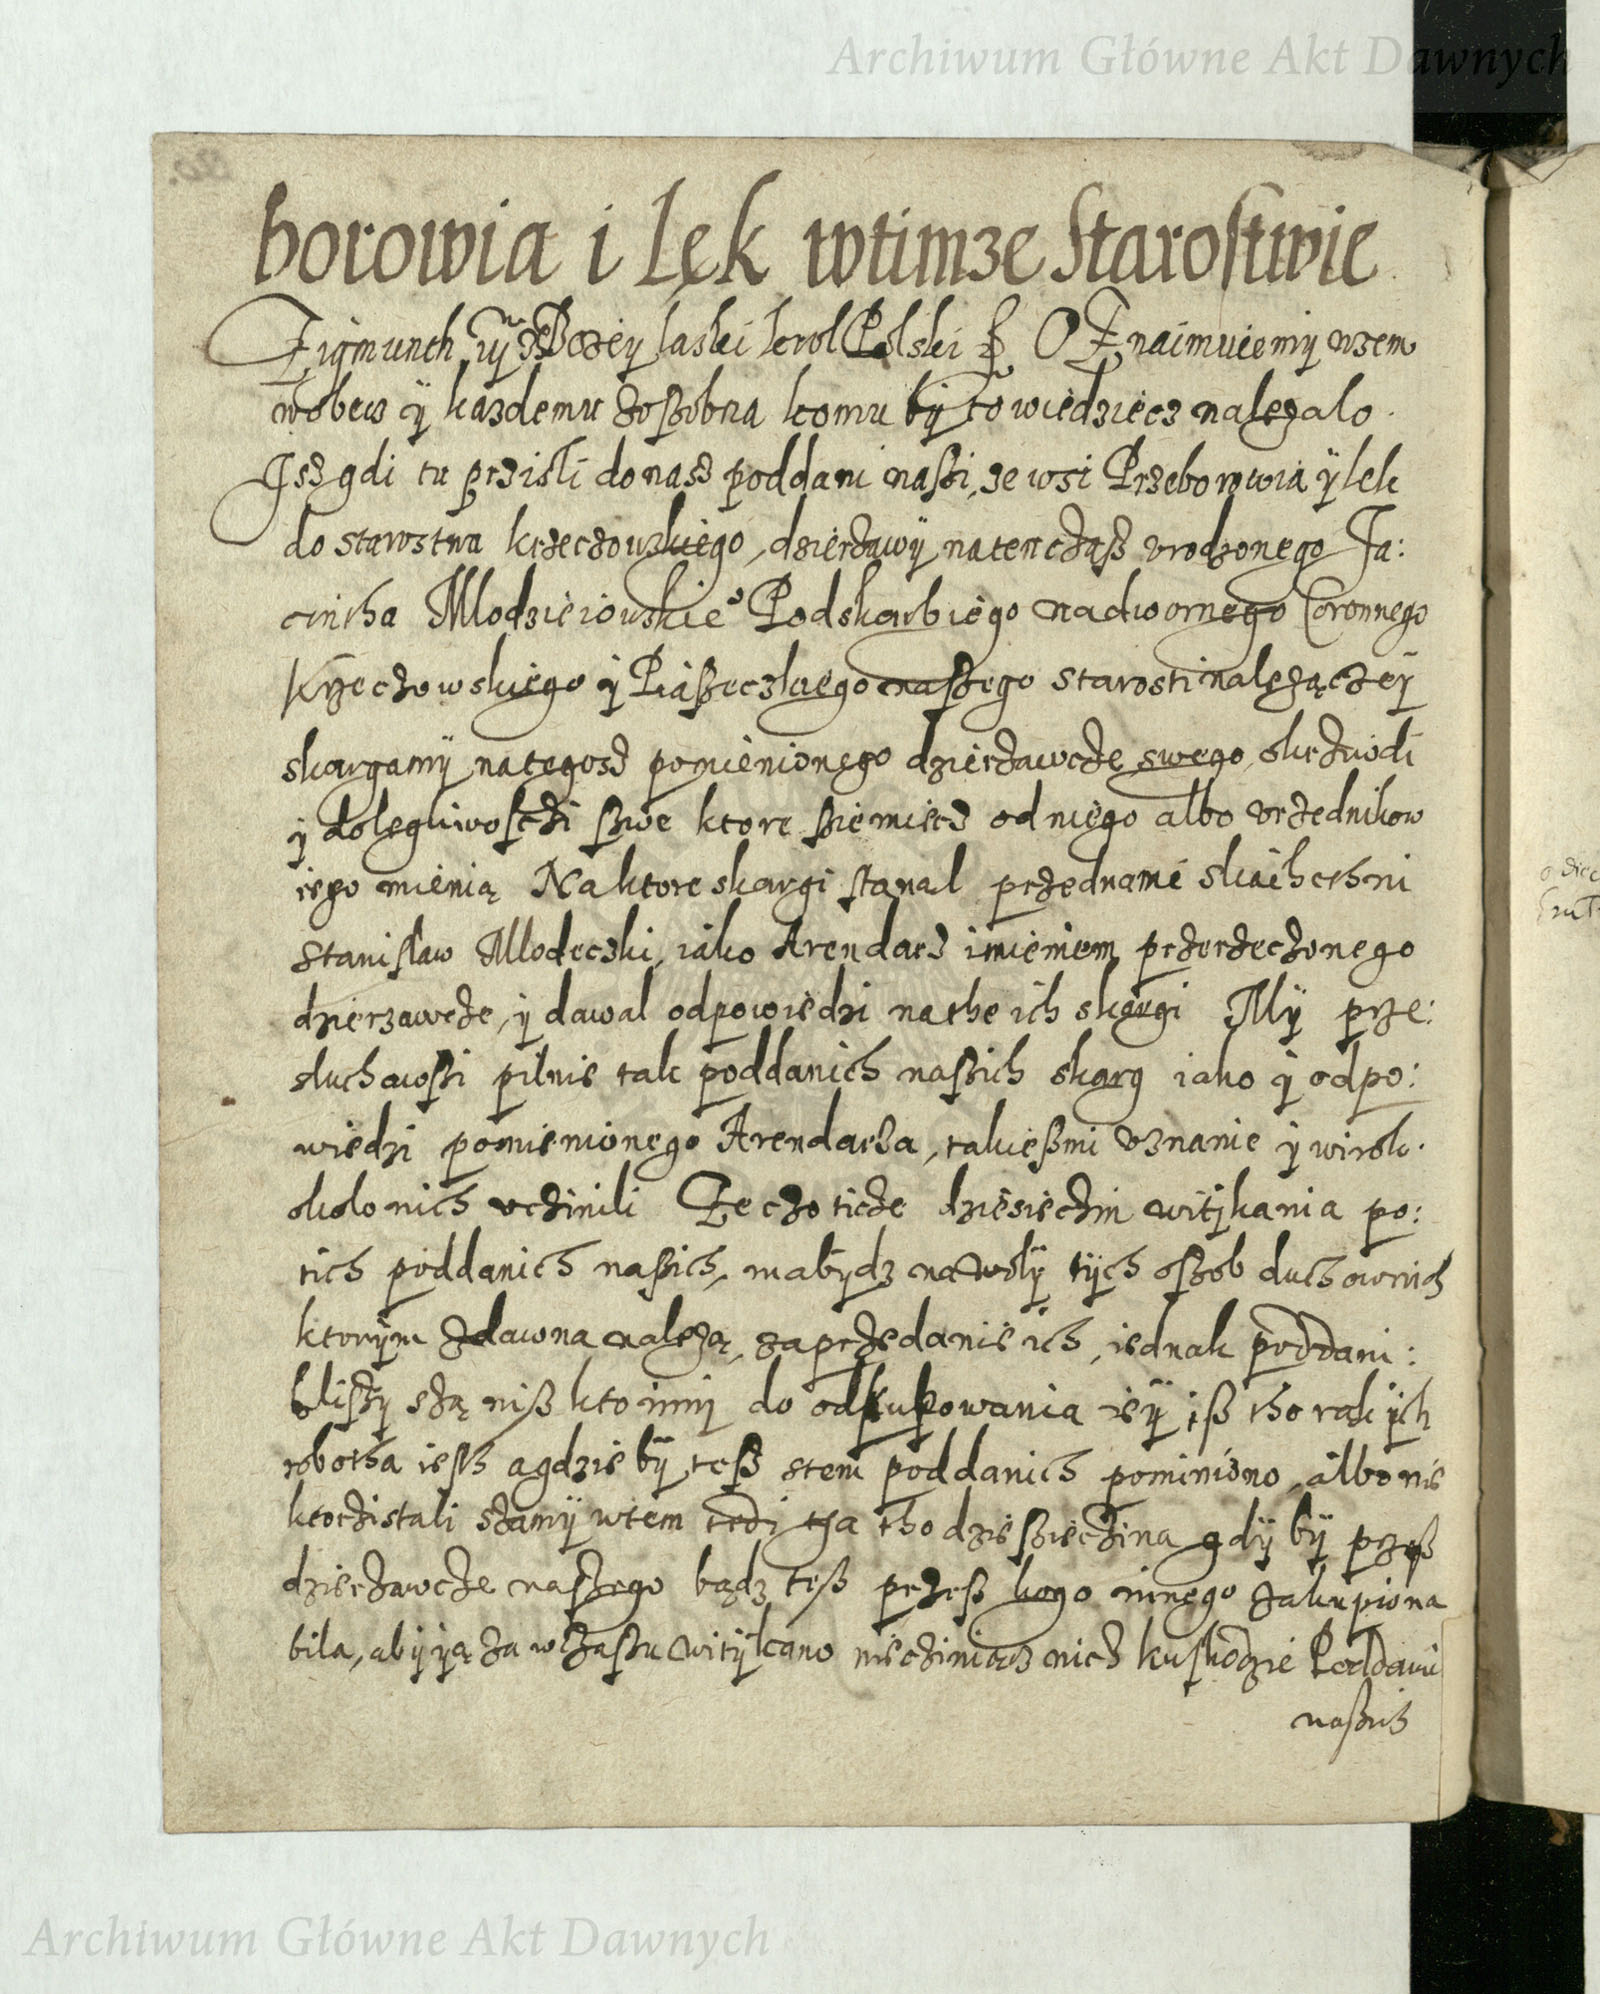 Archiwum Główne Akt Dawnych
borowia i Lęk wtimze Starostwie
Zigmunth iij z Bożey łaski krol Polski &c Oznaimuiemy wsem
wobecz y kazdemu zoszobna komu by to wiedziecz nalezalo.
Jsz gdi tu przisli do nasz poddani naszi, ze wsi Przeborowia y lek
do starostwa krzeczowskiego, dzierzawy natenczasz urodzonego Ja:
cintha Mlodzieiowskie° Podskarbiego nadwornego Coronnego
Krzeczowskiego y Piaseczskiego naszego starosti nalezączey
skargamy na tegosz pomienionego dzierzawcze swego, okrzwidi
y dolegliwosczi szwe ktore sziemiecz od niego albo urzednikow
iego mienią Naktore skargi stanal przednami slacihethni
Stanislaw Mlodecski, iako Arendarz imieniem przerzeczonego
dzierzawcze, y dawal odpowiedzi na the ich skargi My prze:
sluchawszi pilnie tak poddanich naszich skarg iako y odpo:
wiedzi pomienionego Arendarza, takieszmi uznanie y wirok.
okolo nich uczinili Ze czo ticze dziesieczin witykania po:
tich poddanich naszich, mabydz na woly tych oszob duchownich
ktorym zdawna nalezą, zaprzedanie ich, iednak poddani:
bliszy szą nisz kto inni do odkupowania iey isz tho rak ich
robotha iesth agdzie by tesz stem poddanich pominiono, albo nie
ktorzi stali szamy wtem tedi tha tho dziesziecina gdy by przesz
dzierzawcze naszego bądz tesz przesz kogo innego zakupiona
bila, aby ią za wczaszu witykano niecziniacz nicz ku skodzie Poddani
naszich
Archiwum Główne Akt Dawnych